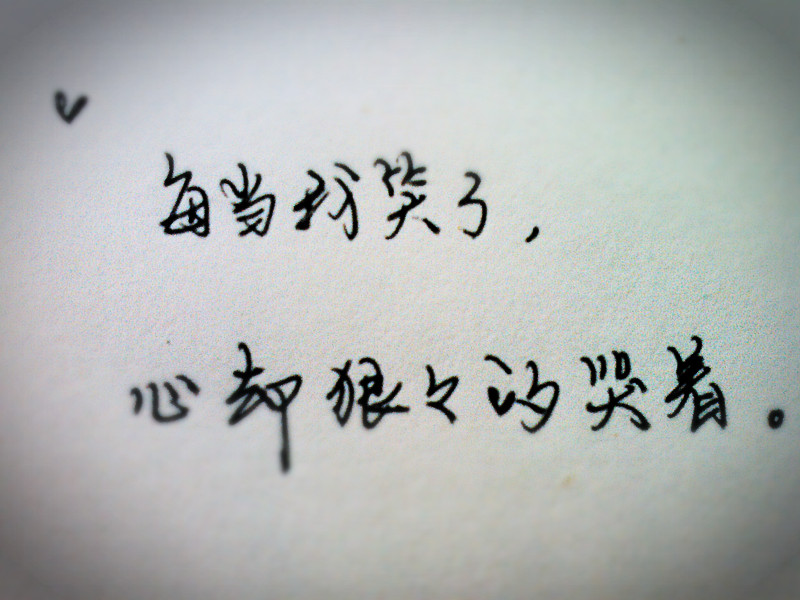 每当我笑了,
心却狠々的哭着。